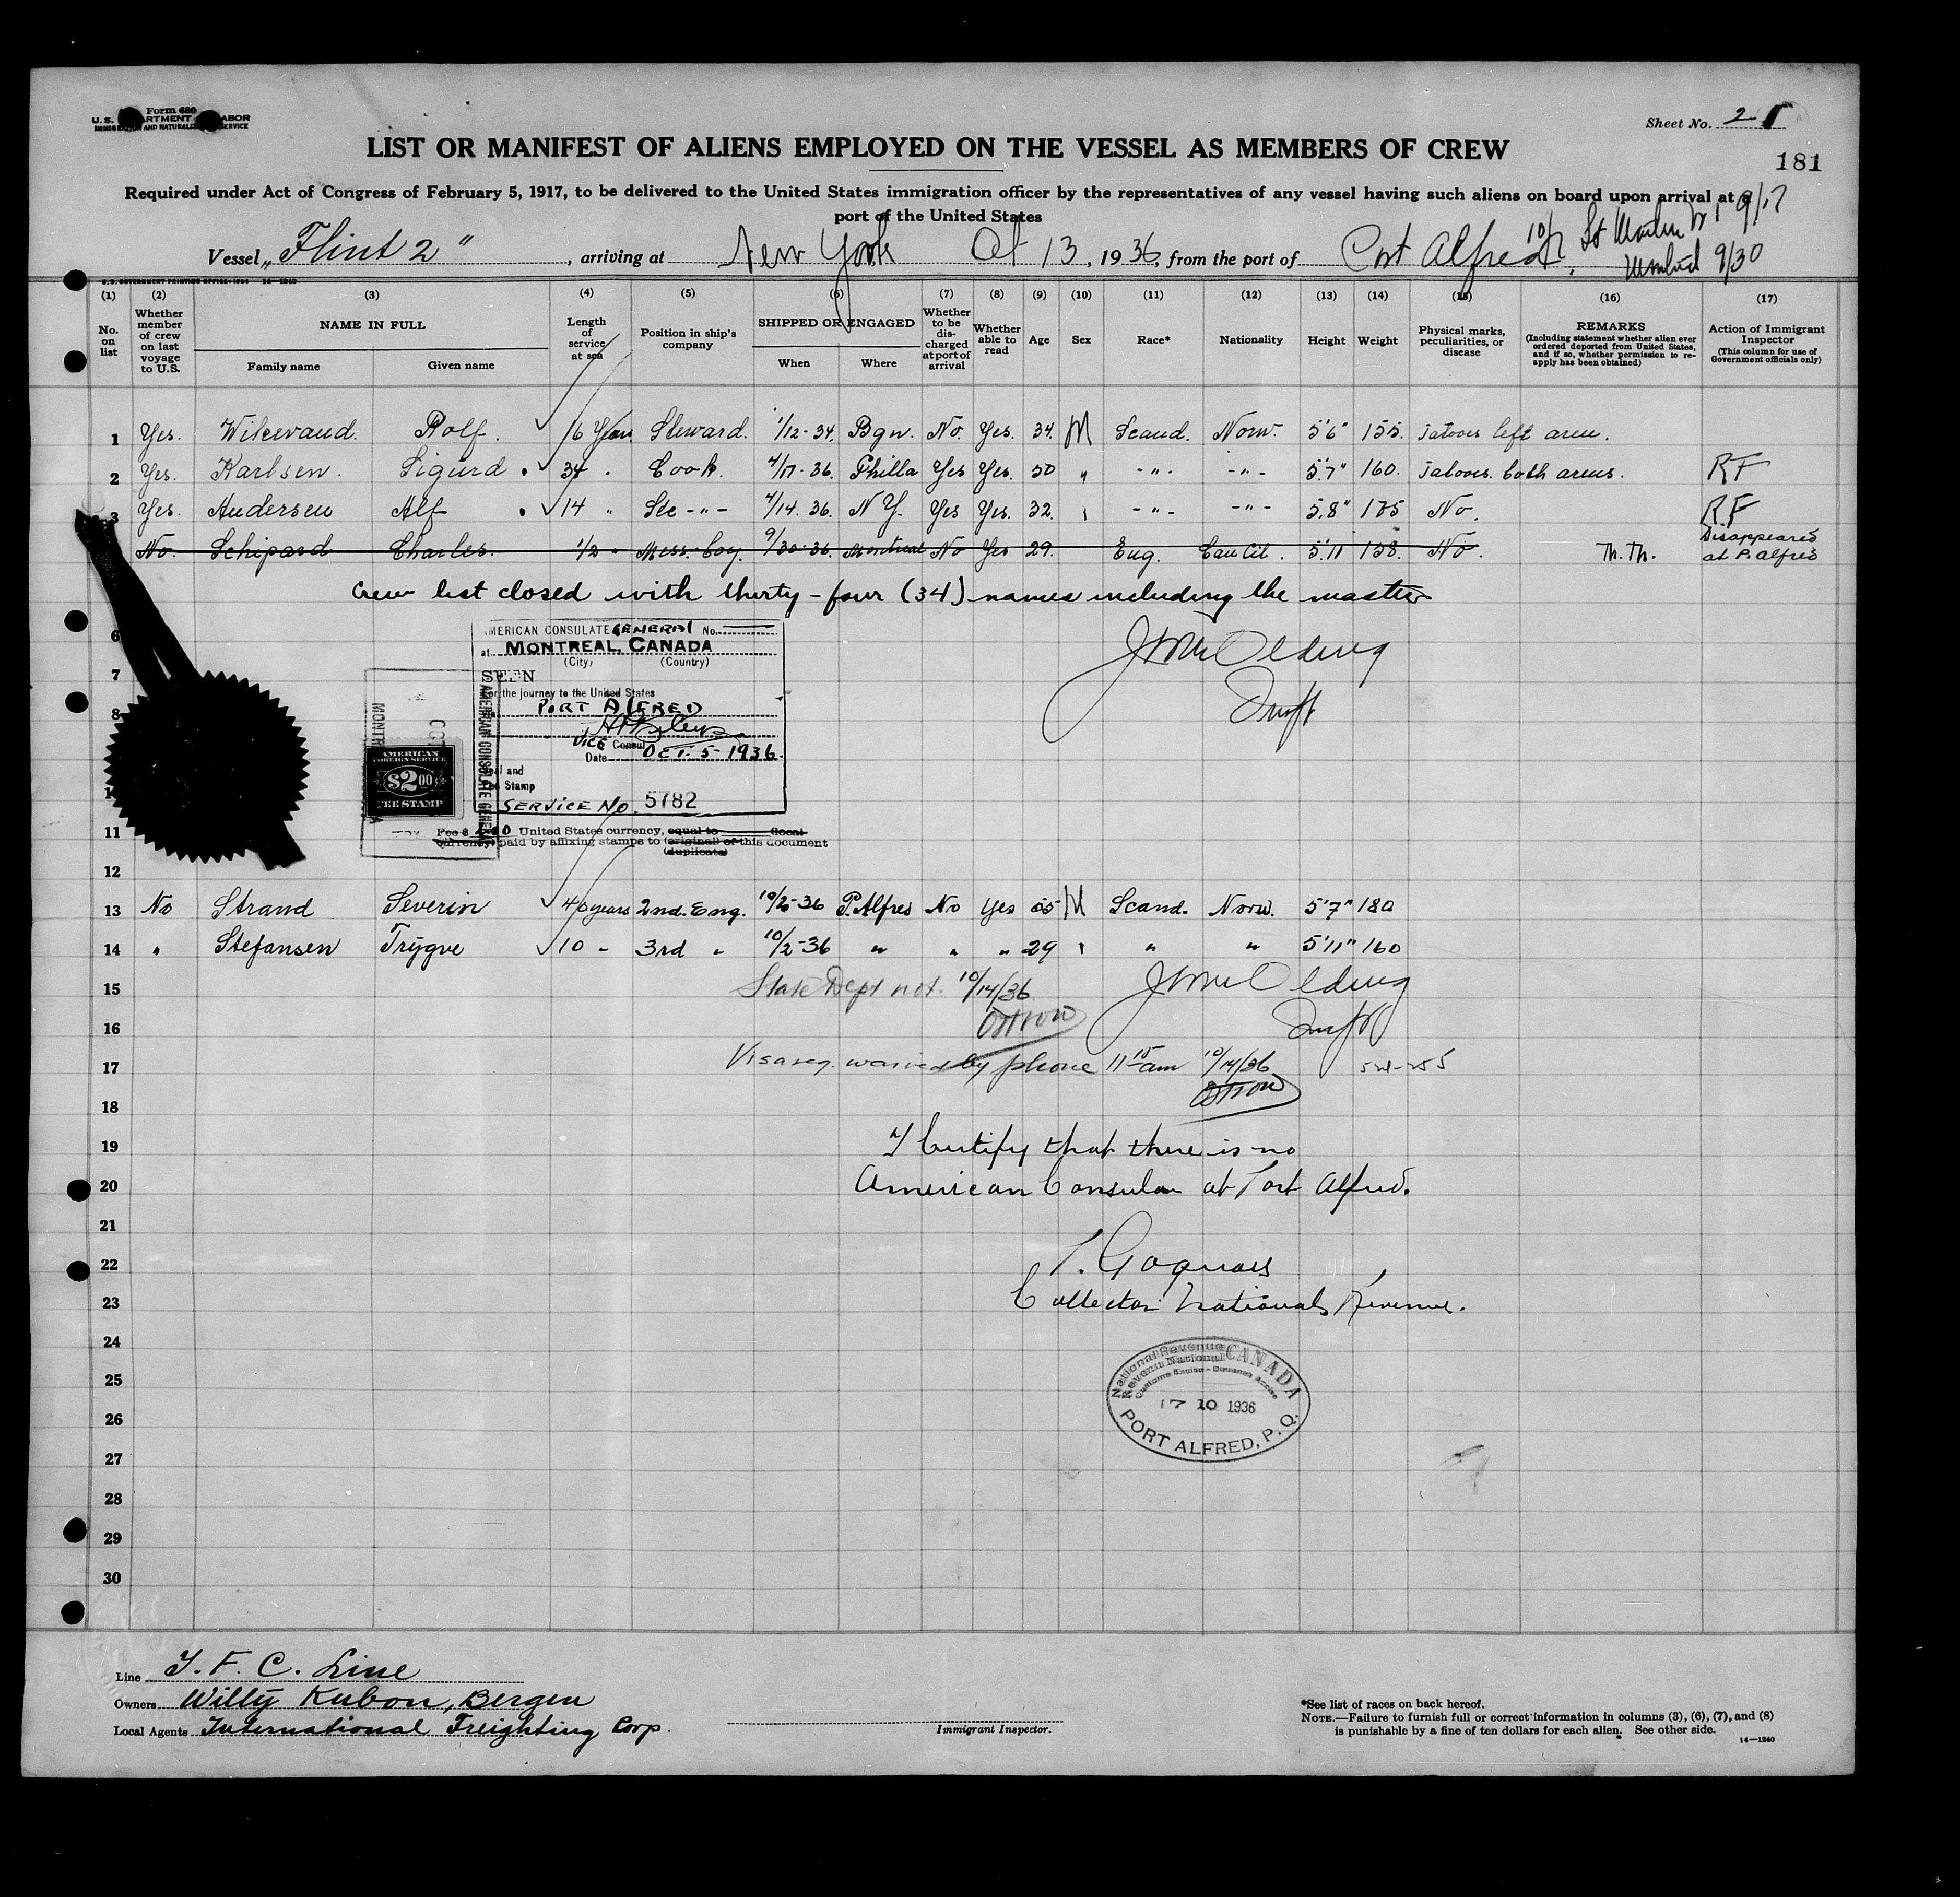 Form 680
U.S. DEPARTMENT OF LABOR
IMMIGRATION AND NATURALIZATION SERVICE
Sheet No. 2
LIST OR MANIFEST OF ALIENS EMPLOYED ON THE VESSEL AS MEMBERS OF CREW
181
Required under Act of Congress of February 5, 1917, to be delivered to the United States immigration officer by the representatives of any vessel having such aliens on board upon arrival at a
port of the United States
9/17
Vessel „Flint 2", arriving at New York Oct 13, 1936, from the port of Port Alfred
9/30
U.S. GOVERNMENT PRINTING OFFICE: 1934 14-1240
(1) (2) (3) (4) (5) (6) (7) (8) (9) (10) (11) (12) (13) (14) (15) (16) (17)
No. on list
Whether member of crew on last voyage to U.S.
NAME IN FULL
Family name Given name
Length of service at sea
Position in ship's company
SHIPPED OR ENGAGED
When Where
Whether to be discharged at port of arrival
Whether able to read
Age
Sex
Race*
Nationality
Height
Weight
Physical marks, peculiarities, or disease
REMARKS
(Including statement whether alien ever ordered deported from United States, and if so, whether permission to reapply has been obtained)
Action of Immigrant Inspector
(This column for use of Government officials only)
1 Yes. Rolf. 16 Years Steward. 1/12-34. Bgn. No. Yes. 34. M Scand. Norw. 5'6" 155. Tatoves left arm.
2 Yes. Karlsen. Sigurd. 34 " Cook. 4/17-36. Philla Yes Yes. 50 " -"- -"- 5'7" 160. Tatoves both arms. RF
3 Yes. Andersen Alf 14 " Ste -"- 4/14.36. N Y. Yes Yes. 32. " -"- -"- 5.8" 175 No. RF
No. Schipard Charles. 1/2 " Mess-boy. 9/30-36. Montreal No Yes 29. Eng. Can Cit. 5'11 138. No. Th. Th. Disappeared at P. Alfred
Crew list closed with thirty-four (34) names including the master
6
7
8
11
12
AMERICAN CONSULATE GENERAL No.
at MONTREAL, CANADA
(City) (Country)
SEEN
For the journey to the United States
PORT ALFRED
VICE Consul
Date OCT. 5-1936.
Seal and
Fee Stamp
SERVICE No. 5782
AMERICAN CONSULATE GENERAL
AMERICAN
FOREIGN SERVICE
$2.00
FEE STAMP
Fee $ 2.00 United States currency, equal to local
currency, paid by affixing stamps to (original) of this document
(duplicate)
13 No Strand Severin 40 years 2nd. Eng. 10/2-36 P. Alfred No Yes 55 M Scand. Norw. 5'7" 180
14 " Stefansen Trygve 10 - 3rd " 10/2-36 " " " 29 " " " 5'11" 160
15 State Dept not. 10/14/36
16 Ostrow
17 Visa req. waived by phone 11 15 am 10/14/36
18 Ostrow
19 I Certify that there is no
20 American Consular at Port Alfred.
21
22
23 Collector National Revenue.
24
25
26
27
28
29
30
National Revenue CANADA
Revenu National
Customs Excise - Douanes Accise
7 10 1936
PORT ALFRED, P.Q.
Line I. F. C. Line
Owners Willy Kubon, Bergen
Local Agents International Freighting Corp.
Immigrant Inspector.
*See list of races on back hereof.
NOTE.—Failure to furnish full or correct information in columns (3), (6), (7), and (8)
is punishable by a fine of ten dollars for each alien. See other side.
14-1240